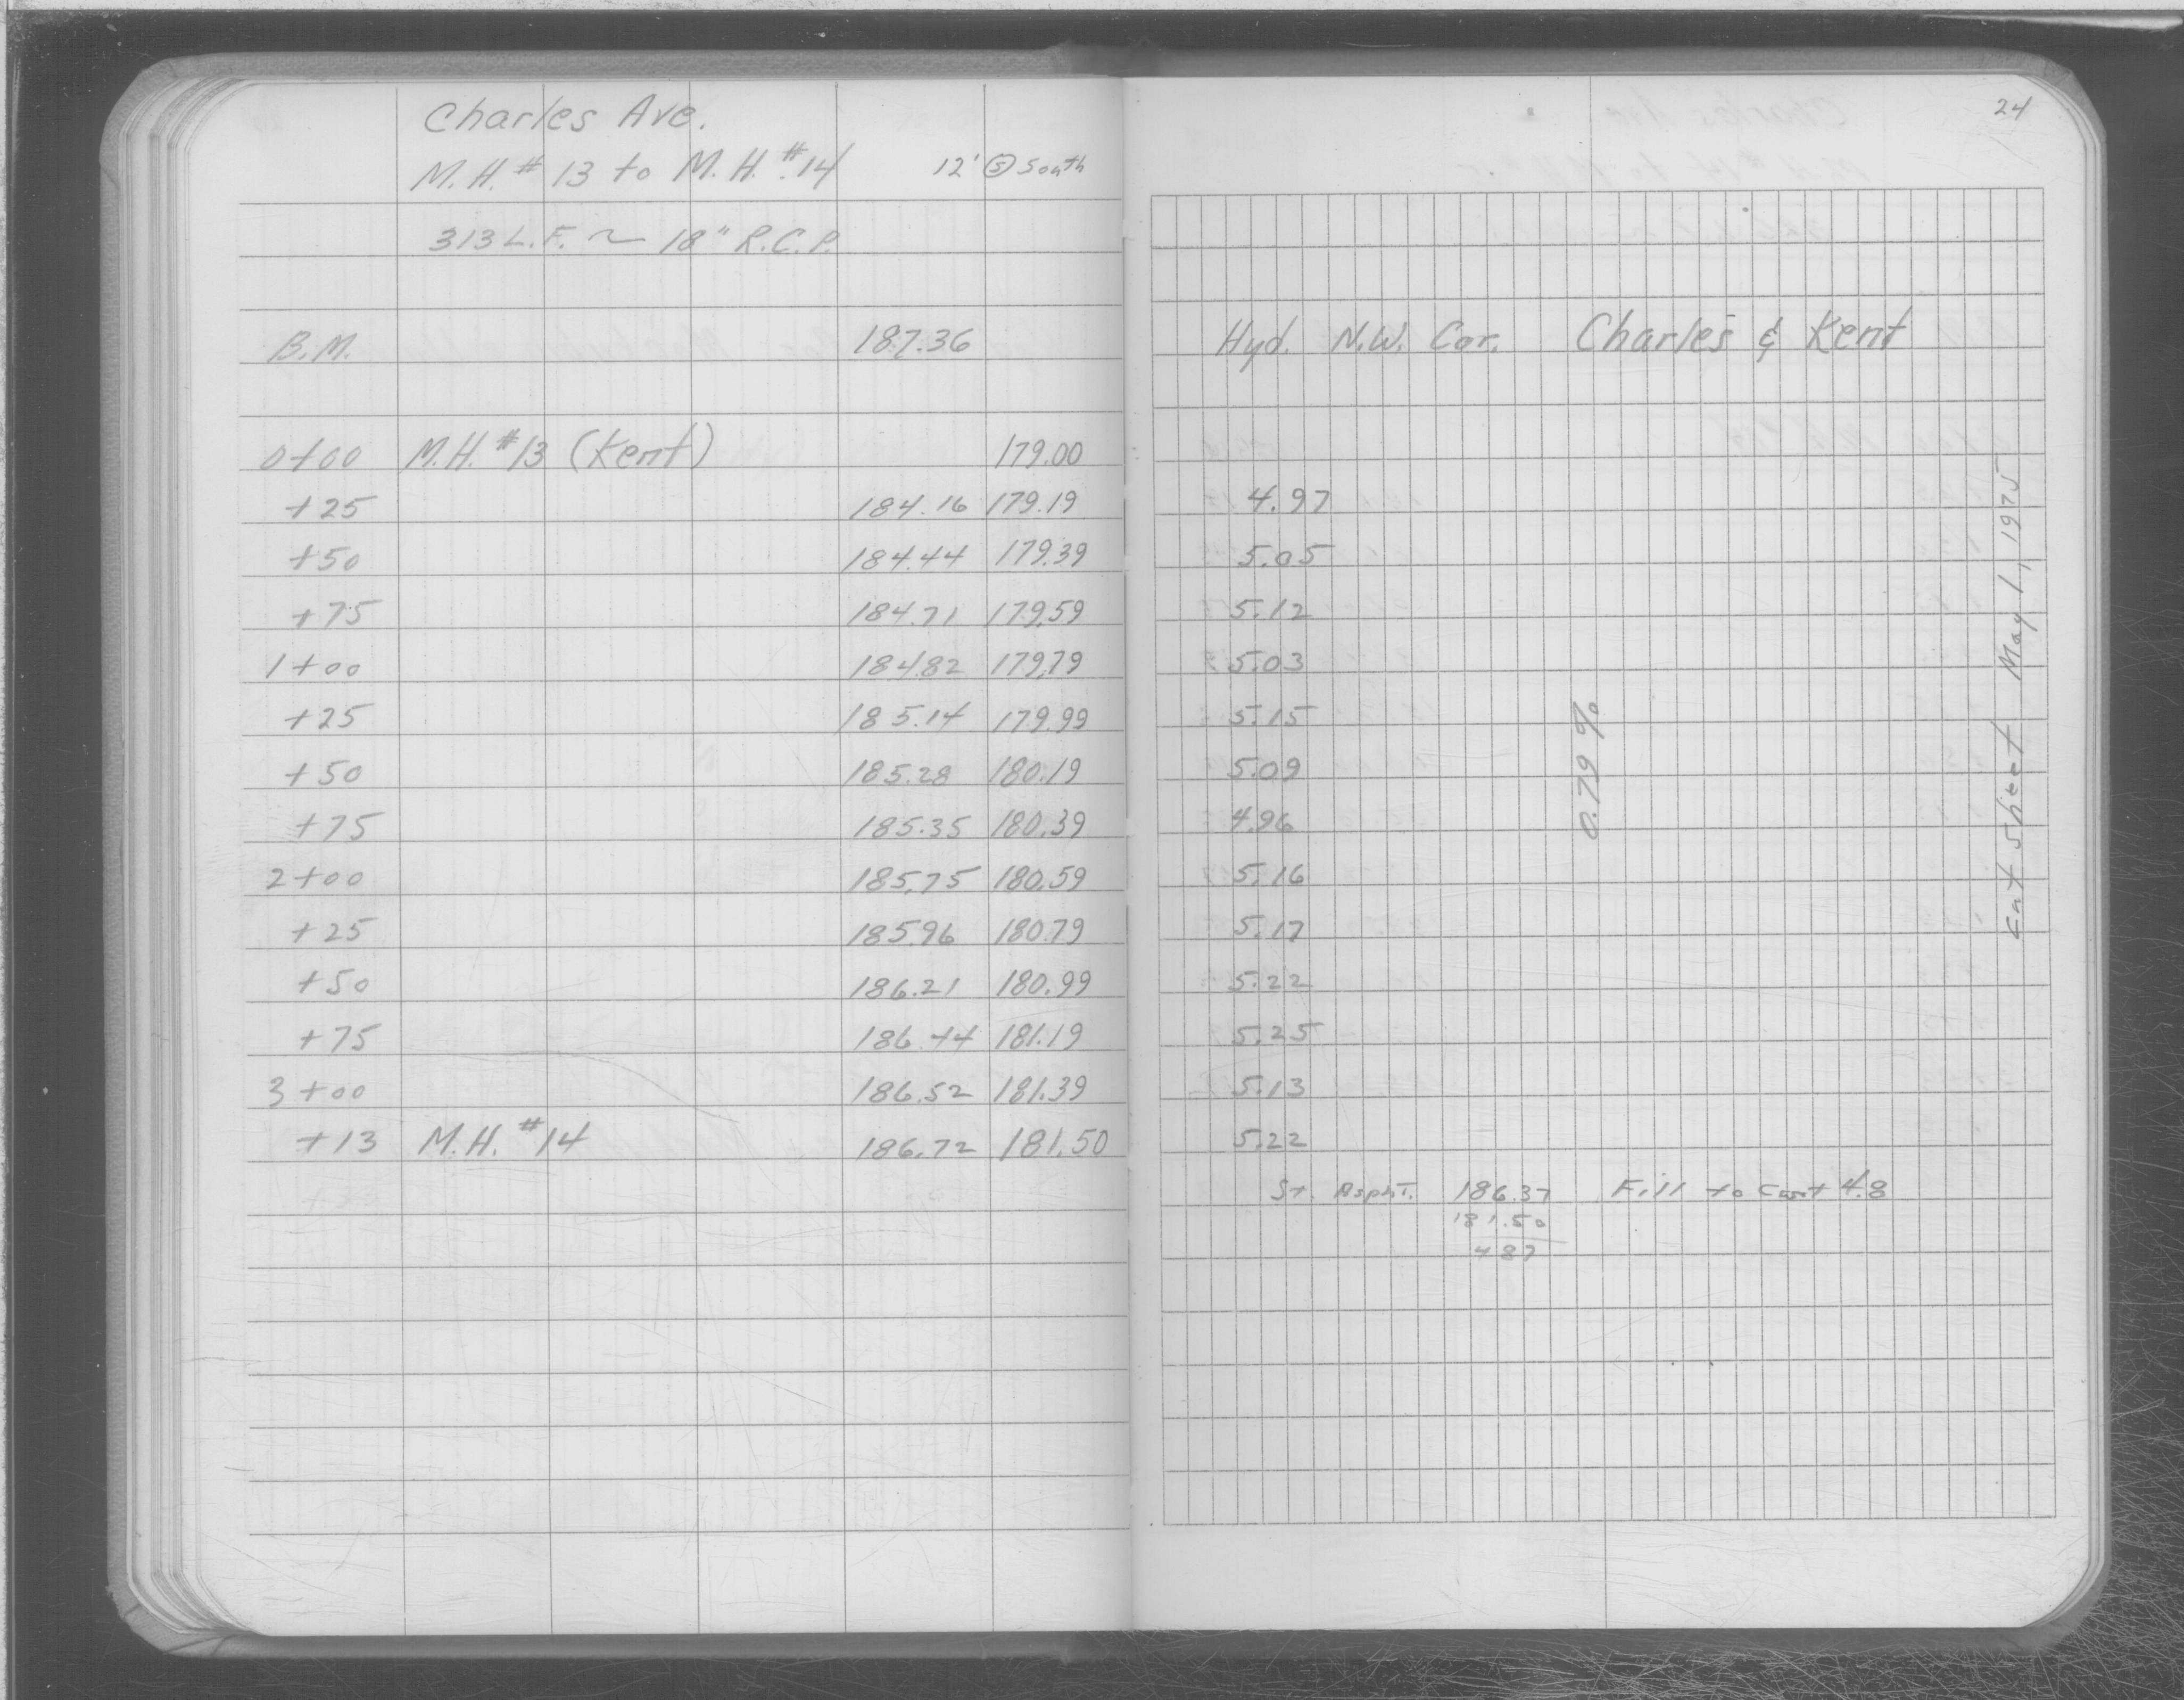 Charles Ave.
M.H. # 13 to M.H. # 14 12' Ⓢ South
313 L.F. ~ 18" R.C.P.
B.M. 187.36
0+00 M.H. #13 (Kent) 179.00
+25 184.16 179.19
+50 184.44 179.39
+75 184.71 179.59
1+00 184.82 179.79
+25 185.14 179.99
+50 185.28 180.19
+75 185.35 180.39
2+00 185.75 180.59
+25 185.96 180.79
+50 186.21 180.99
+75 186.44 181.19
3+00 186.52 181.39
+13 M.H. #14 186.72 181.50
24
Hyd. N.W. Cor. Charles & Kent
4.97
5.05
5.12
5.03
5.15
5.09
4.96
5.16
5.17
5.22
5.25
5.13
5.22
St. Asph'T. 186.37 Fill to Cut 4.8
181.50
487
0.79 %
Cut Sheet May 1, 1975